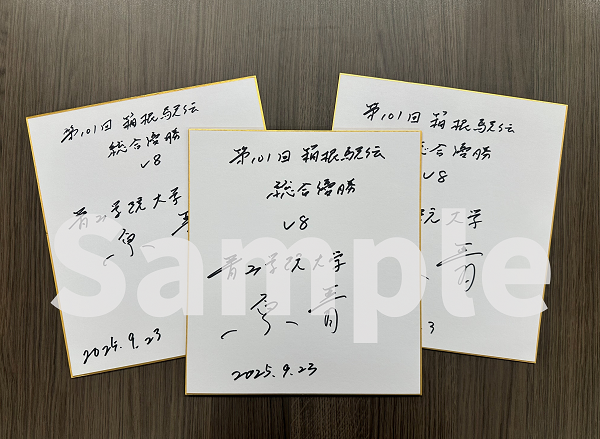 第101回 箱根駅伝
総合優勝
V8
青山学院大学
原
2025.9.23
第101回 箱根駅伝
総合優勝
V8
青山学院大学
原 晋
2025.9.23
第101回 箱根駅伝
合優勝
V8
院大学
晋
3
Sample